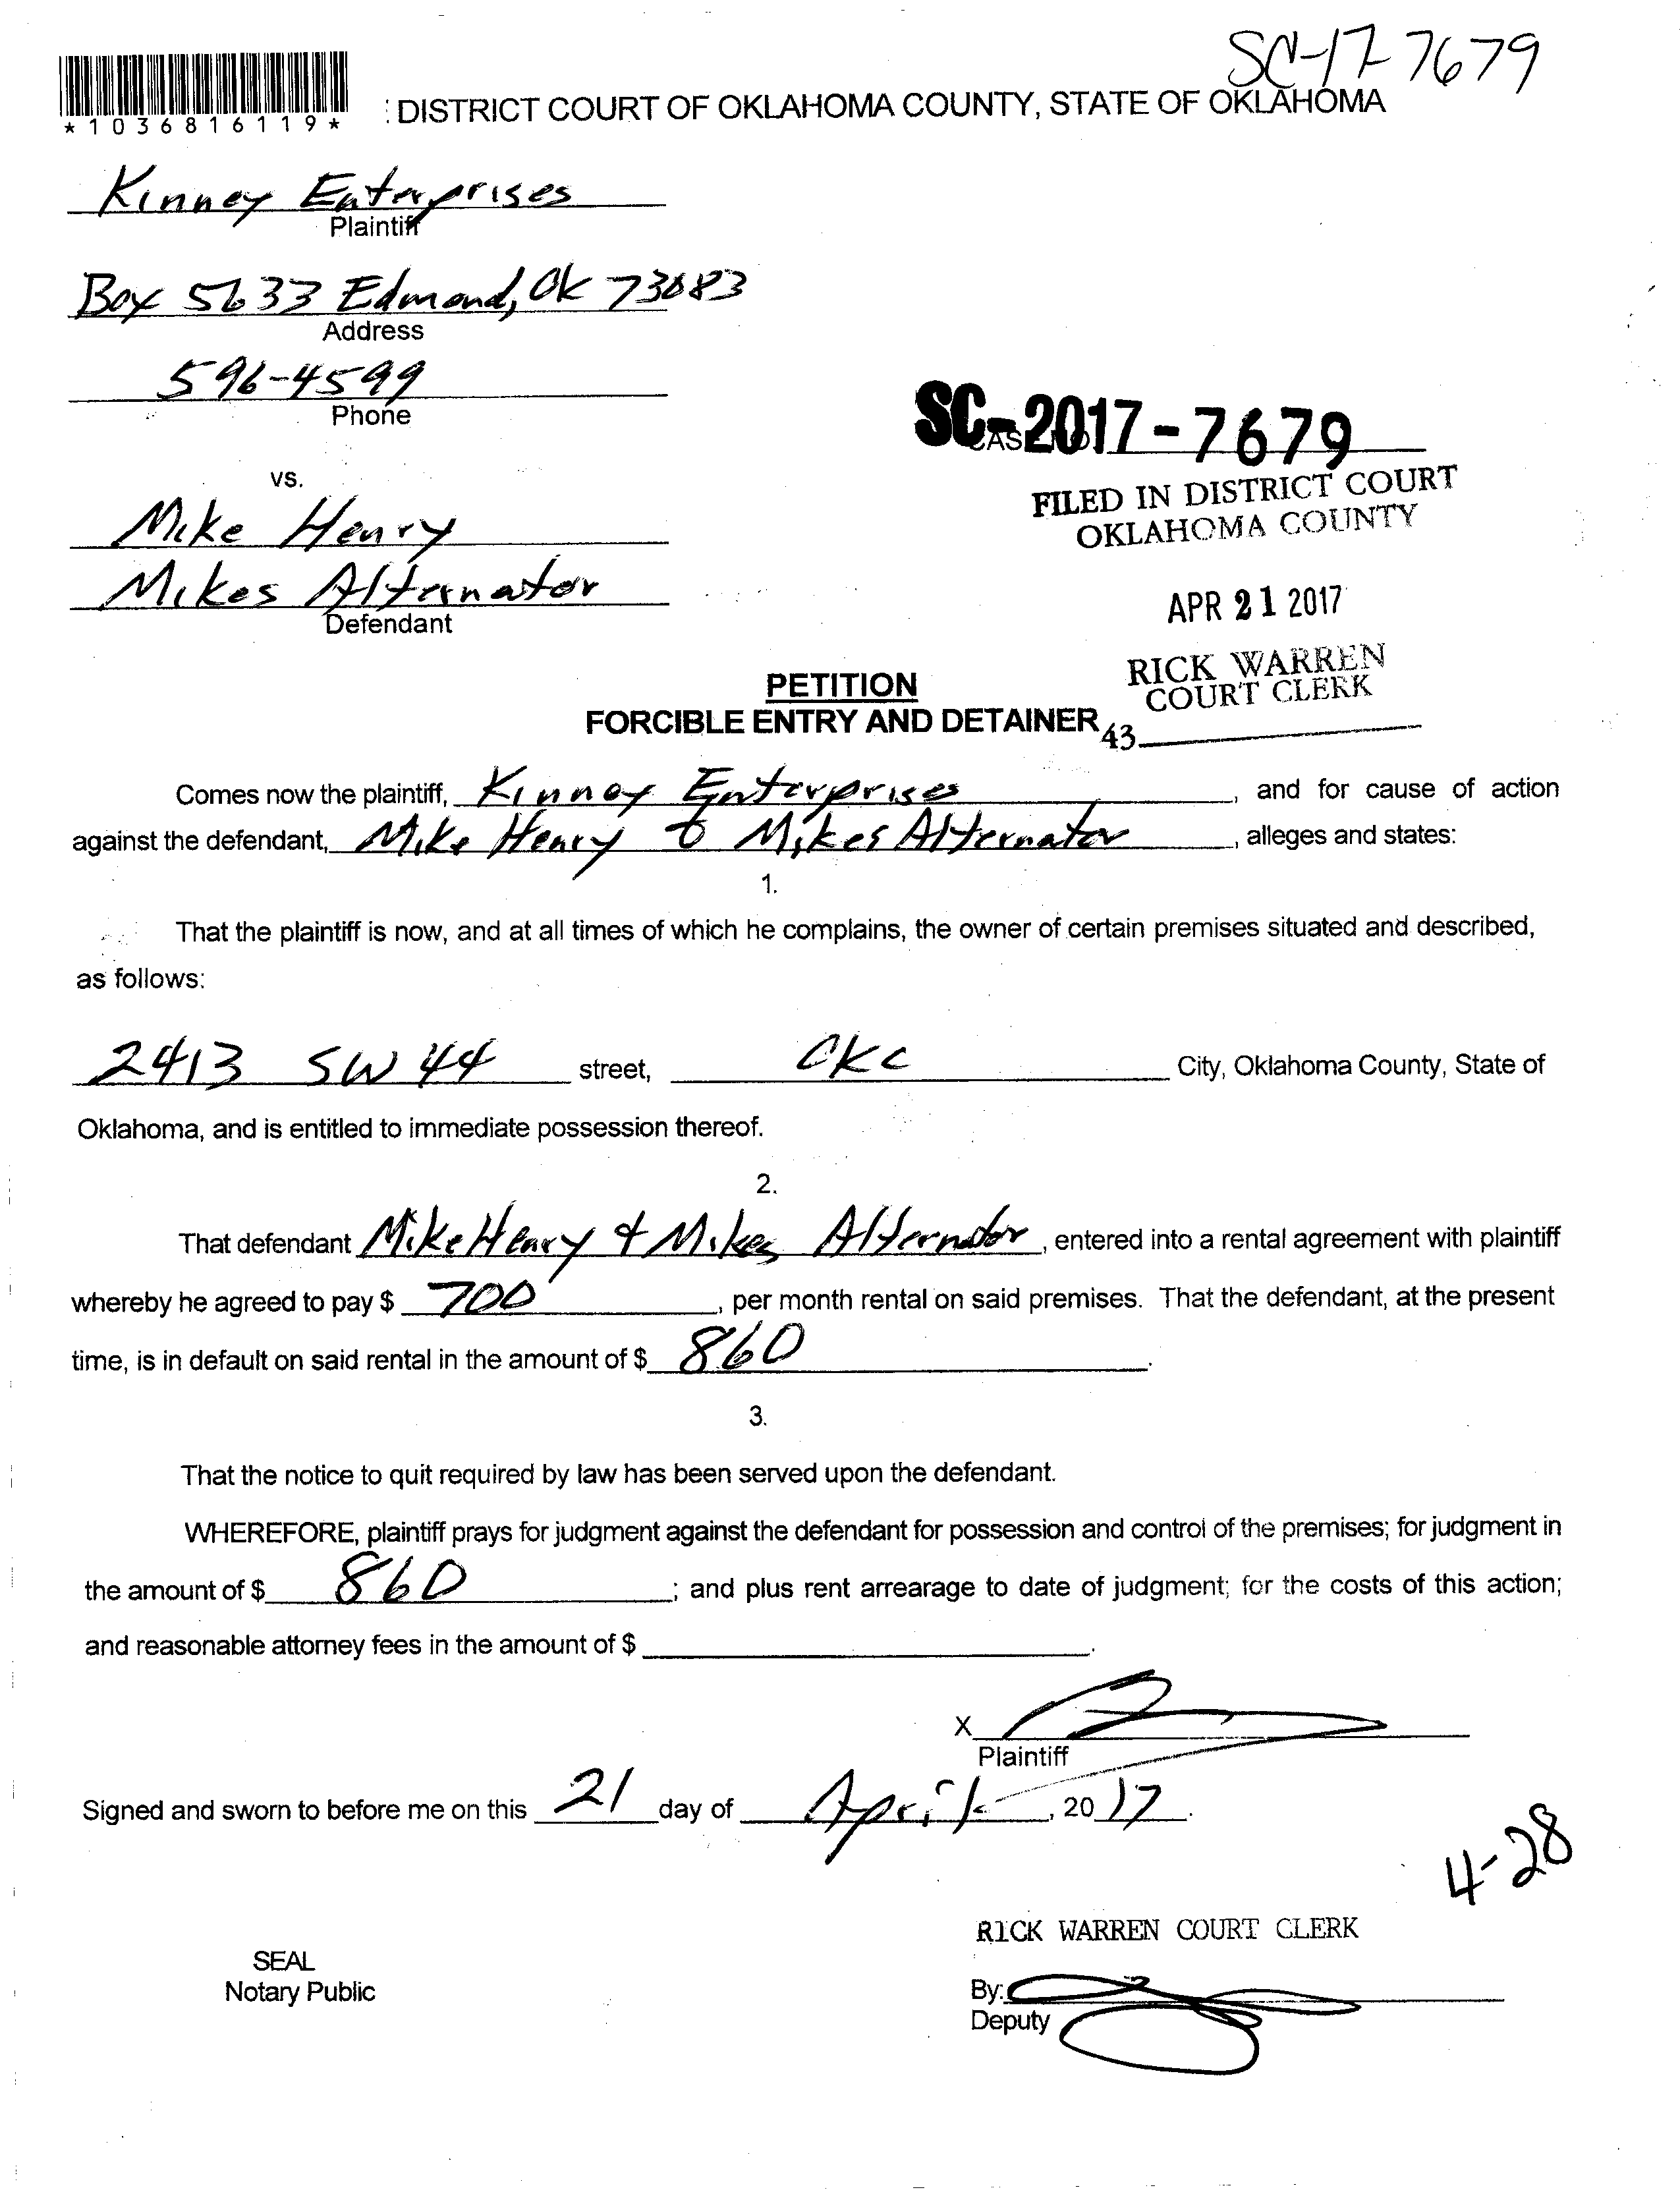 SC-17-7679
*1036816119*
: DISTRICT COURT OF OKLAHOMA COUNTY, STATE OF OKLAHOMA
Kinney Enterprises
Plaintiff
Box 5633 Edmond, Ok 73083
Address
596-4599
Phone
SC-2017-7679
vs.
FILED IN DISTRICT COURT
OKLAHOMA COUNTY
Mike Henry
Mikes Alternator
Defendant
APR 21 2017
RICK WARREN
COURT CLERK
43
PETITION
FORCIBLE ENTRY AND DETAINER
Comes now the plaintiff, Kinney Enterprises, and for cause of action
against the defendant, Mike Henry & Mikes Alternator, alleges and states:
1.
That the plaintiff is now, and at all times of which he complains, the owner of certain premises situated and described,
as follows:
2413 SW 44 street, OKC City, Oklahoma County, State of
Oklahoma, and is entitled to immediate possession thereof.
2.
That defendant Mike Henry & Mikes Alternator, entered into a rental agreement with plaintiff
whereby he agreed to pay $ 700, per month rental on said premises. That the defendant, at the present
time, is in default on said rental in the amount of $ 860.
3.
That the notice to quit required by law has been served upon the defendant.
WHEREFORE, plaintiff prays for judgment against the defendant for possession and control of the premises; for judgment in
the amount of $ 860; and plus rent arrearage to date of judgment; for the costs of this action;
and reasonable attorney fees in the amount of $ .
X
Plaintiff
Signed and sworn to before me on this 21 day of April, 20 17.
4-28
RICK WARREN COURT CLERK
SEAL
Notary Public
By:
Deputy